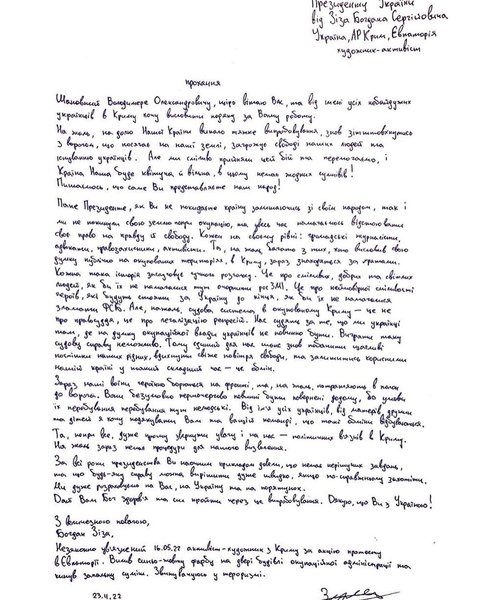 Президенту України
від Зіза Богдана Сергійовича
Україна, АР Крим, Євпаторія
художник-активіст
прохання
Шановний Володимире Олександровичу, щиро вітаю Вас, та від імені усіх небайдужих
українців в Криму хочу висловити подяку за Вашу роботу.
На жаль, на долю Нашої Країни випало тяжке випробовування, знов зіштовхнутись
з ворогом, що посягає на наші землі, загрожує свободі наших людей та
існуванню українців. Але ми сміливо прийняли цей бій та переможемо, і
Країна Наша буде квітуча й вільна, в цьому немає жодних сумнівів!
Пишаємось, що саме Ви представляєте наш народ!
Пане Президенте, як Ви не покидаєте країну залишаючись зі своїм народом, так і
ми не покинули свою землю попри окупацію, та увесь час намагаємось відстоювати
своє право на правду й свободу. Кожен на своєму рівні: громадські журналісти,
адвокати, правозахисники, активісти. Та, на жаль, багато з них, хто висловив свою
думку публічно на окупованих територіях, в Криму, зараз знаходяться за гратами.
Кожна така історія заслуговує гучного розголосу. Це про сміливих, добрих та світлих
людей, як би їх не намагалися тут очорнити росЗМІ. Це про неймовірної сміливості
героїв, які будуть стояти за Україну до кінця, як би їх не намагалися
зламати ФСБ. Але, нажаль, судова система в окупованому Криму — це не
про правосуддя, це про легалізацію репресій. Нас судять за те, що ми українці
там, де на думку окупаційної влади українців не повинно бути. Виграти таку
судову справу неможливо. Тому єдиний для нас шанс знов побачити щасливі
посмішки наших рідних, вдихнути свіже повітря свободи, та залишитись корисними
нашій країні у такий складний час — це обмін.
Зараз наші воїни героїчно борються на фронті, та, на жаль, потрапляють в полон
до ворога. Вони безумовно першочергово повинні бути повернені додому, бо умови
їх перебування тут нелюдські. Від імені усіх українців, від матерів, дружин
та дітей я хочу подякувати Вам та вашій команді, що такі обміни відбуваються.
Та, попри все, дуже прошу звернути увагу і на нас — політичних в'язнів в Криму.
На жаль зараз немає процедури для нашого визволення.
За всі роки президенства Ви власним прикладом довели, що немає нерішучих завдань,
та що будь-яку справу можна вирішити дуже швидко, якщо по-справжньому захотіти.
Ми дуже розраховуємо на Вас, на Україну та на порятунок.
Дай Вам Бог здоров'я та сил пройти через це випробування. Дякую, що Ви з Україною!
З величезною повагою,
Богдан Зіза,
Незаконно ув'язнений 16.05.22 активіст-художник з Криму за акцію протесту
в Євпаторії. Вилив синьо-жовту фарбу на двері будівлі окупаційної адміністрації та
кинув запальну суміш. Звинувачуюсь у тероризмі.
23.11.22